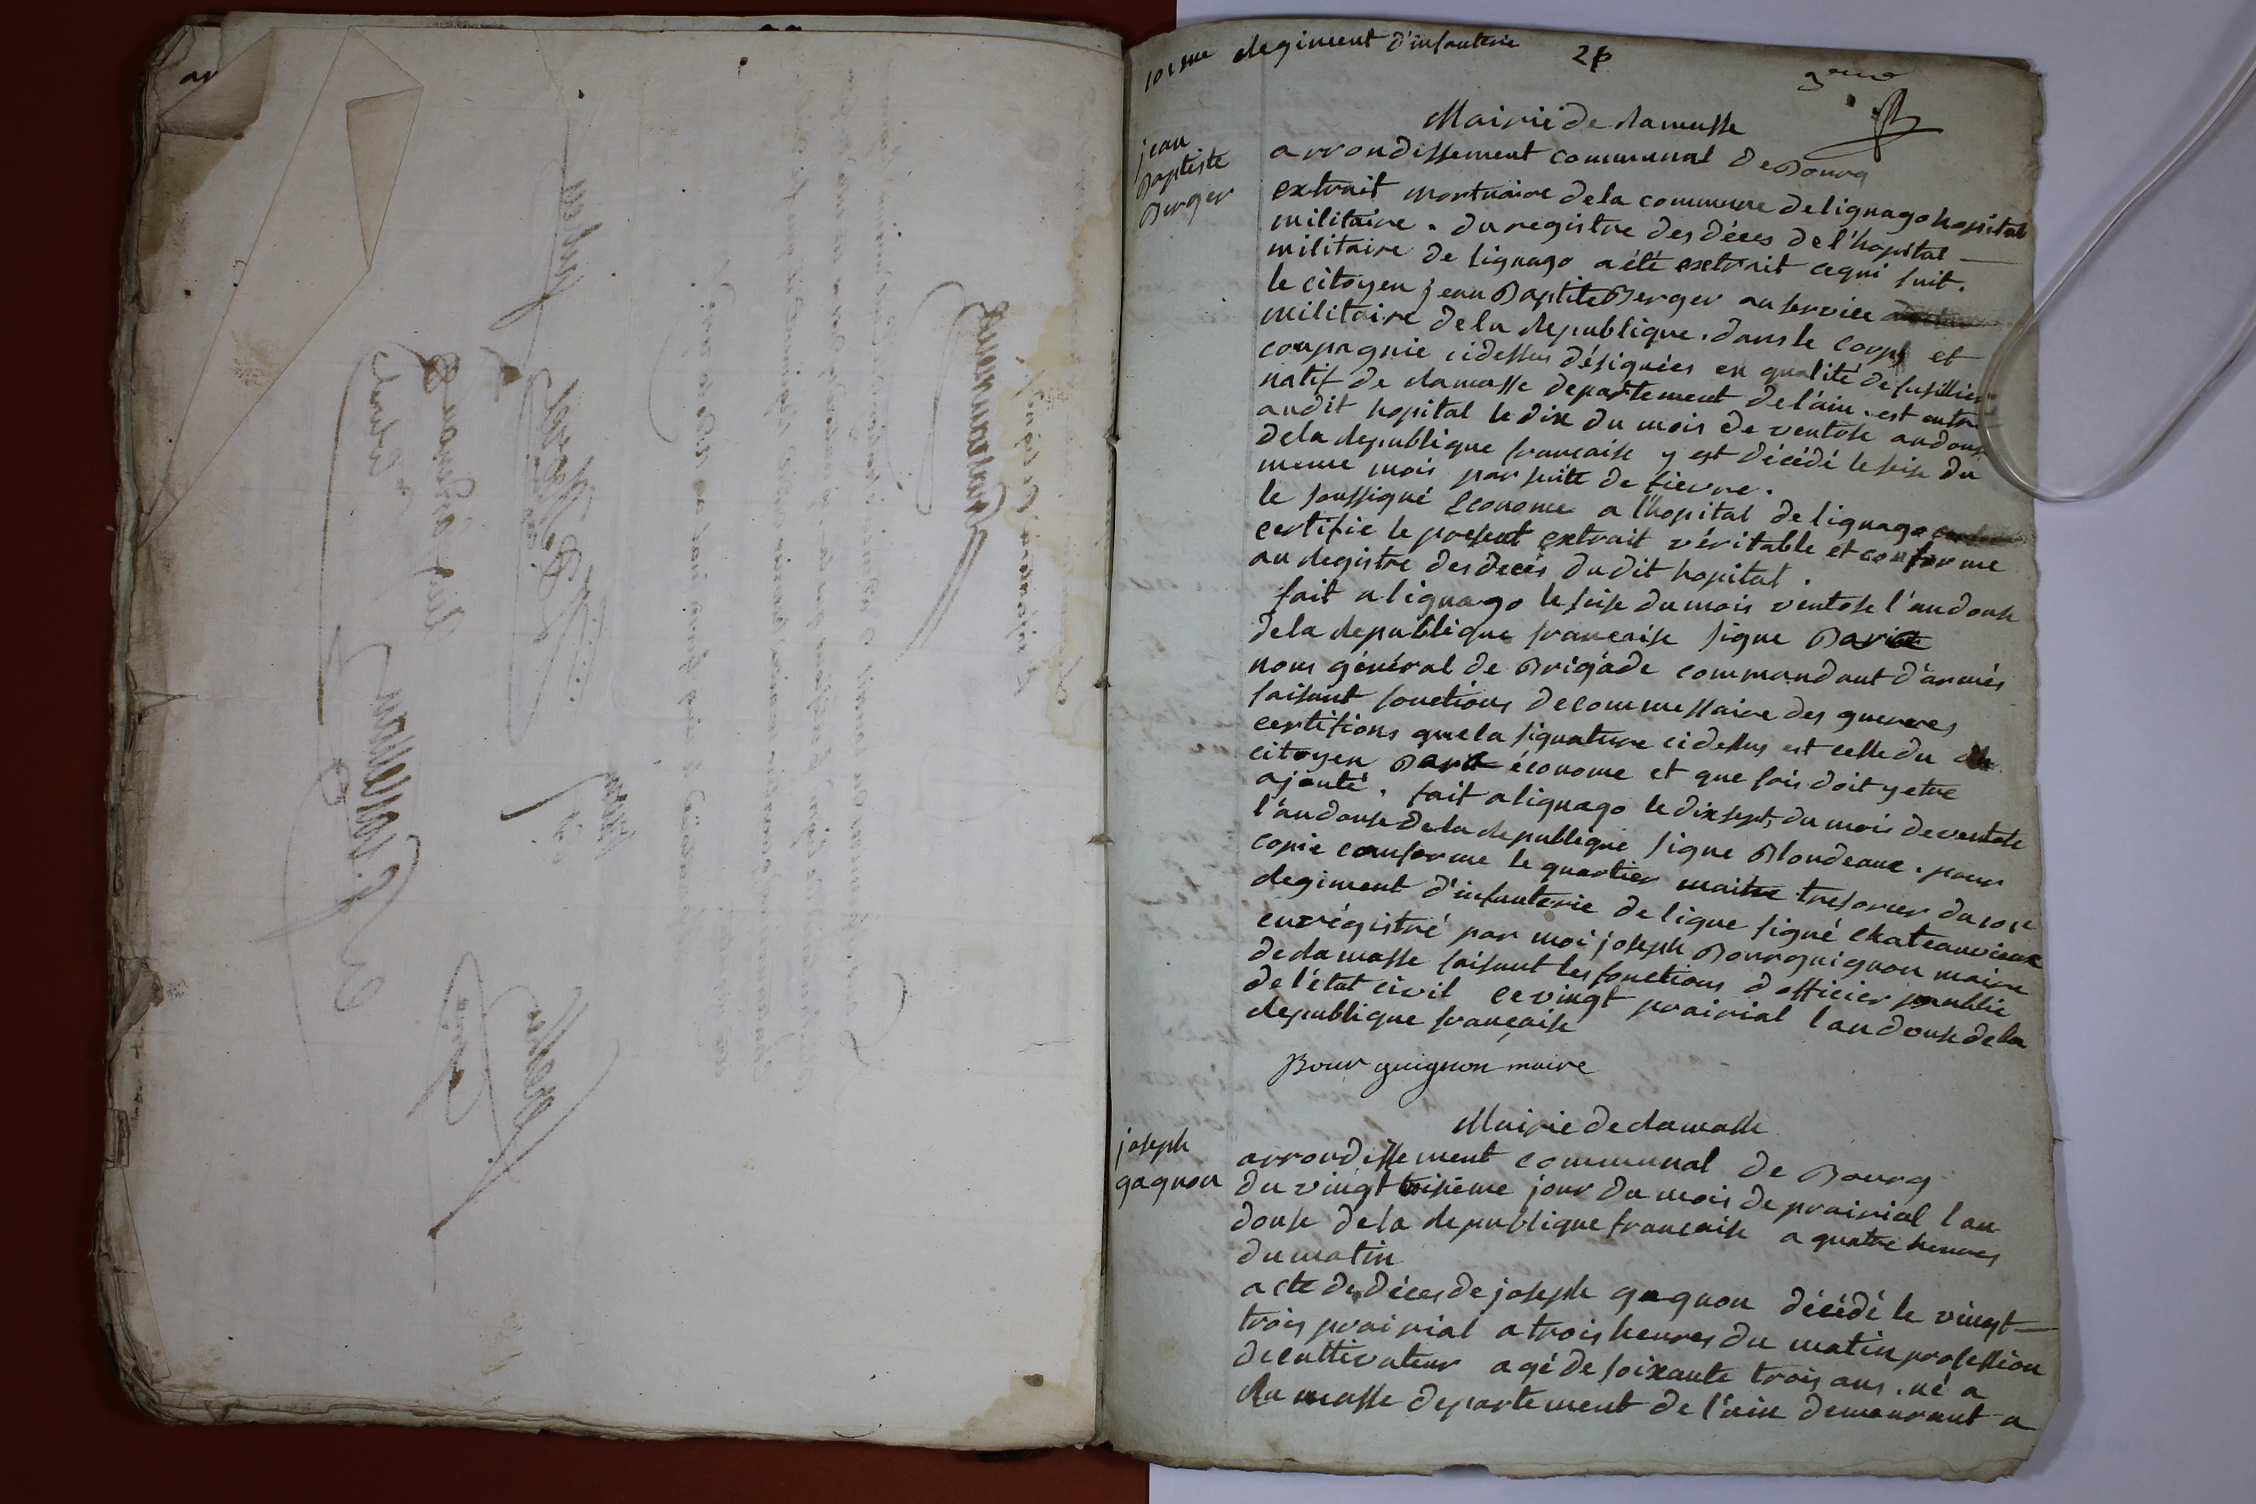 101eme Regiment d'infanterie
3eme
jean
Baptiste
Berger
Mairie de Ramasse
arrondissement communal de Bourg
extrait mortuaire de la commune de lignago hopital
militaire. du registre des déces de l'hopital
militaire de lignago a été extrait cequi suit.
le citoyen jean Baptiste Berger au service
militaire de la Republique. dans le corps et
compagnie cidessus désignées en qualité de fusillier
natif de Ramasse departement de l'ain. est entré
audit hopital le dix du mois de ventose an douse
dela Republique francaise y est décédé le seise du
meme mois par suite de fievre.
le soussigné Econome a l'hopital de lignago
certifie le present extrait véritable et conforme
au Registre des decés du dit hopital.
fait a lignago le seise du mois ventose l'an douse
dela Republique francaise signe
nous général de Brigade commandant d'armés
faisant fonctions de commessaire des guerres
certifions que la signature cidessus est celle du
citoyen économe et que fois doit y etre
ajouté. fait a lignago le dixsept du mois de ventose
l'an douse de la Republeque signe Blondeaux. pour
copie conforme le quartier maitre tresorier du 101e
Regiment d'infanterie de ligne signé Chateauvieux
enrégistré par moi joseph Bourguignon maire
de Ramasse faisant les fonctions d'officier public
de l'état civil ce vingt prairial l'an douse de la
Republique française
Bourguignon maire
joseph
gagnon
Mairie de Ramasse
arrondissement communal de Bourg
du vingt troisième jour du mois de prairial l'an
douse de la Republique francaise a quatre heures
du matin
acte de déces de joseph gagnon décédé le vingt
trois prairial a trois heures du matin profession
de cultivateur agé de soixante trois ans. né a
Ramasse departement de l'ain demeurant a